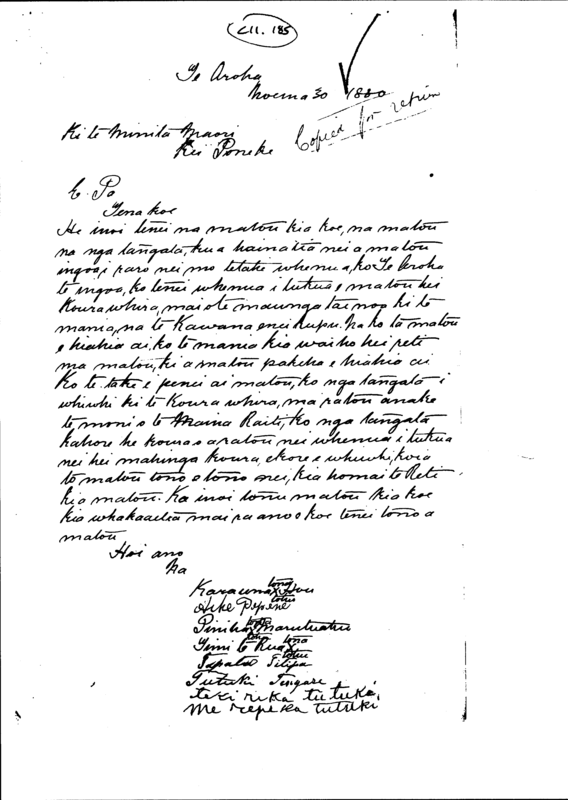 C11.185
Te Aroha
Noema 30 1880
Copied for return
Ki te Minita Maori
Kei Poneke
E Pa
Tena koe
He inoi tenei na matou kia koe, na matou
na nga tangata, kua hainatia nei a matou
ingoa i raro nei mo tetahi whenua, ko Te Aroha
te ingoa, ko tenei whenua i tukua e matou hei
Koura whira, mai o te maunga tai noa ki te
mania, na te Kawana enei kupu. Na ko ta matou
e hiahia ai, ko te mania kia waiho hei reti
ma matou, ki a matou pakeha e hiahia ai
Ko te take e penei ai matou, ko nga tangata i
whiwhi ki te Koura whira, ma ratou anake
te moni o te Maina Raiti, ko nga tangata
kahore he koura o a ratou nei whenua i tukua
nei hei mahinga koura, ekore e whiwhi, koia
te matou tono o tono nei, kia homai te Reti
kia matou. Ka inoi tonu matou kia koe
kia whakaaetia mai ra ano e koe tenei tono a
matou
Hoi ano
Na
Karauna x Hou
Aihe Pepene
Piniha x Marutuahu
Timi te Rua x
Tapata Tilipa
Tutuki Tengare
teki rika tutuki,
Me repeka tutuki